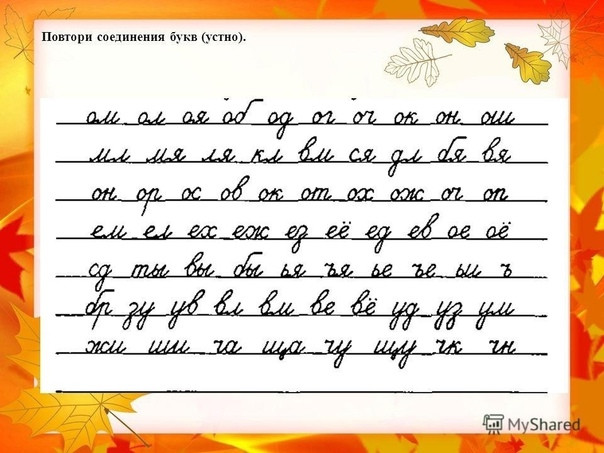 Повтори соединения букв (устно).
ом ол оя об од ог оч ок он ош
мл мя ля кл вм ся дл бя вя
он ор ос ов ок от ох ож оч оп
ем ел ех еж ез её ед ев ое оё
сд ты вы бы ья ъя ье ъе ыи ъ
бр зу ув вл вм ве вё уд уз ум
жи ши ча ща чу щу чк чн
MyShared